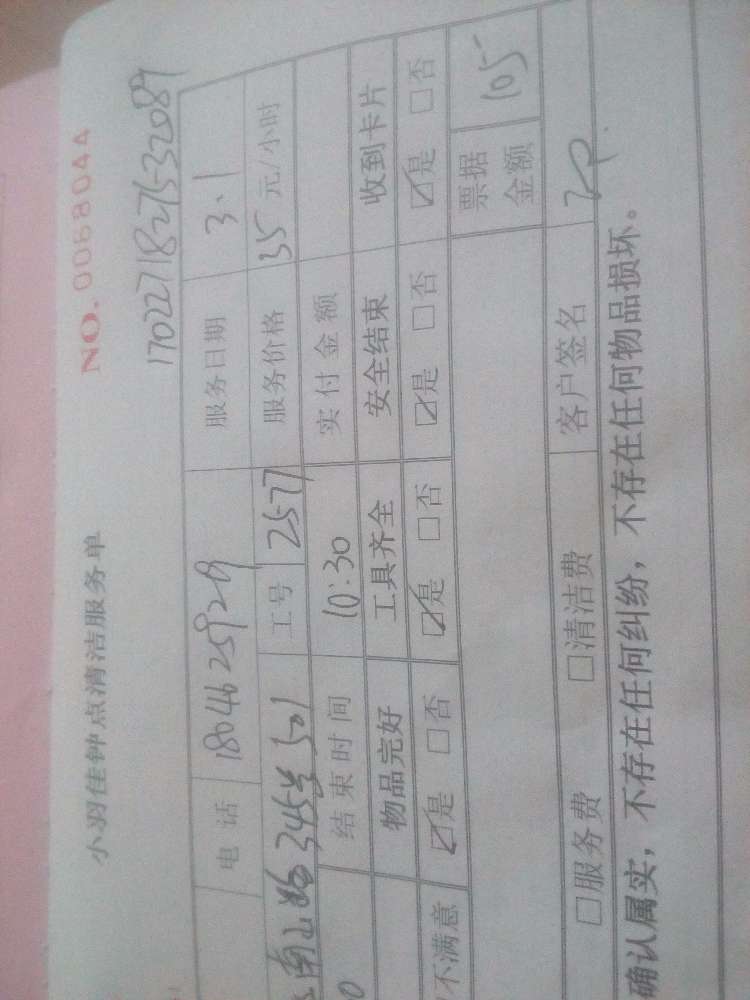 小羽佳钟点清洁服务单 NO.0068044
170227182753 2089
电话 18046225929 服务日期 3.1
南山路345号501 工号 2577 服务价格 35元/小时
0 结束时间 10:30 实付金额
物品完好 工具齐全 安全结束 收到卡片
不满意 ☑是 □否 ☑是 □否 ☑是 □否 ☑是 □否
票据金额 105
□服务费 □清洁费 客户签名
确认属实，不存在任何纠纷，不存在任何物品损坏。